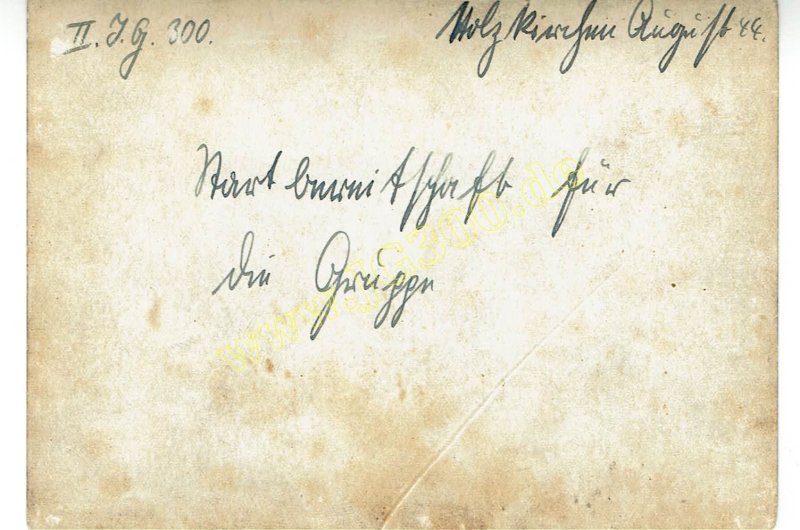 II. J.G. 300. Holzkirchen August 44.
Startbereitschaft für
die Gruppe
www.JG300.de